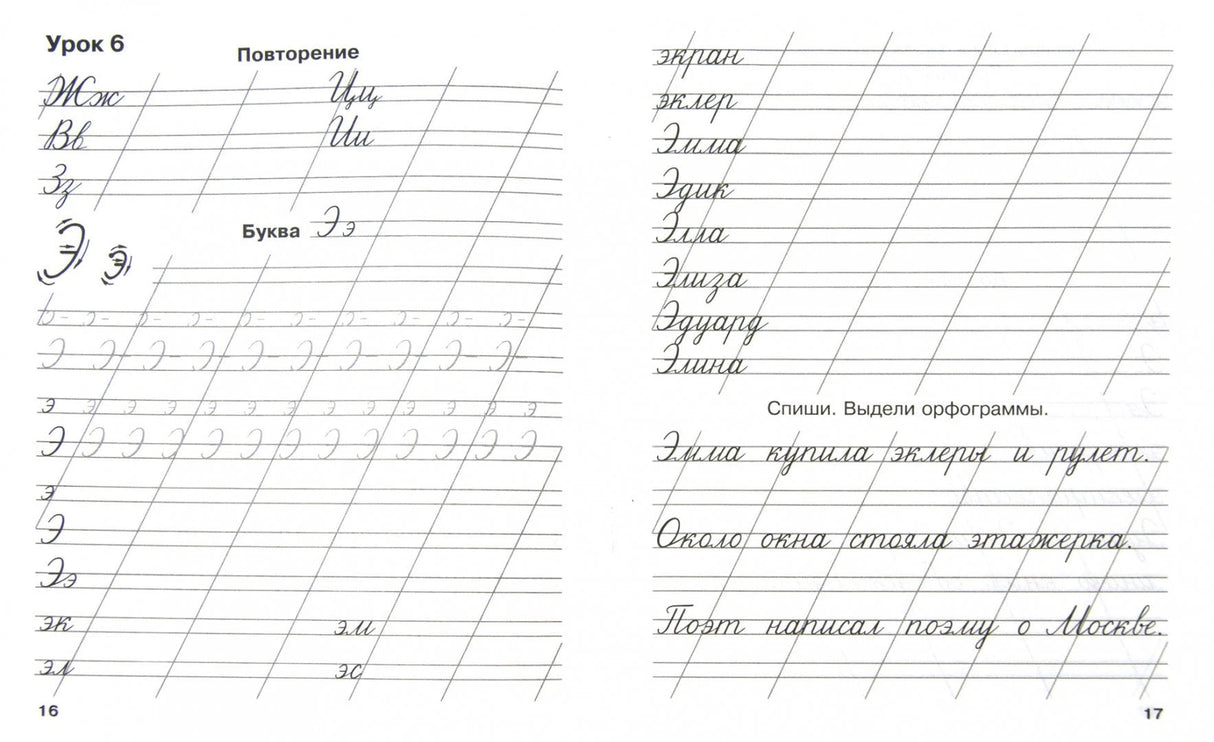 Урок 6
Повторение
Жж Цц
Вв Ии
Зз
Буква Ээ
Ээ
э э э э э э э э э э э
Э Э Э Э Э Э Э Э Э Э
э э э э э э э э э э э э э
Э Э Э Э Э Э Э Э Э Э Э Э Э
э
Э
Ээ
эк эм
эл эс
16
экран
эклер
Эмма
Эдик
Элла
Элиза
Эдуард
Элина
Спиши. Выдели орфограммы.
Эмма купила эклеры и рулет.
Около окна стояла этажерка.
Поэт написал поэму о Москве.
17